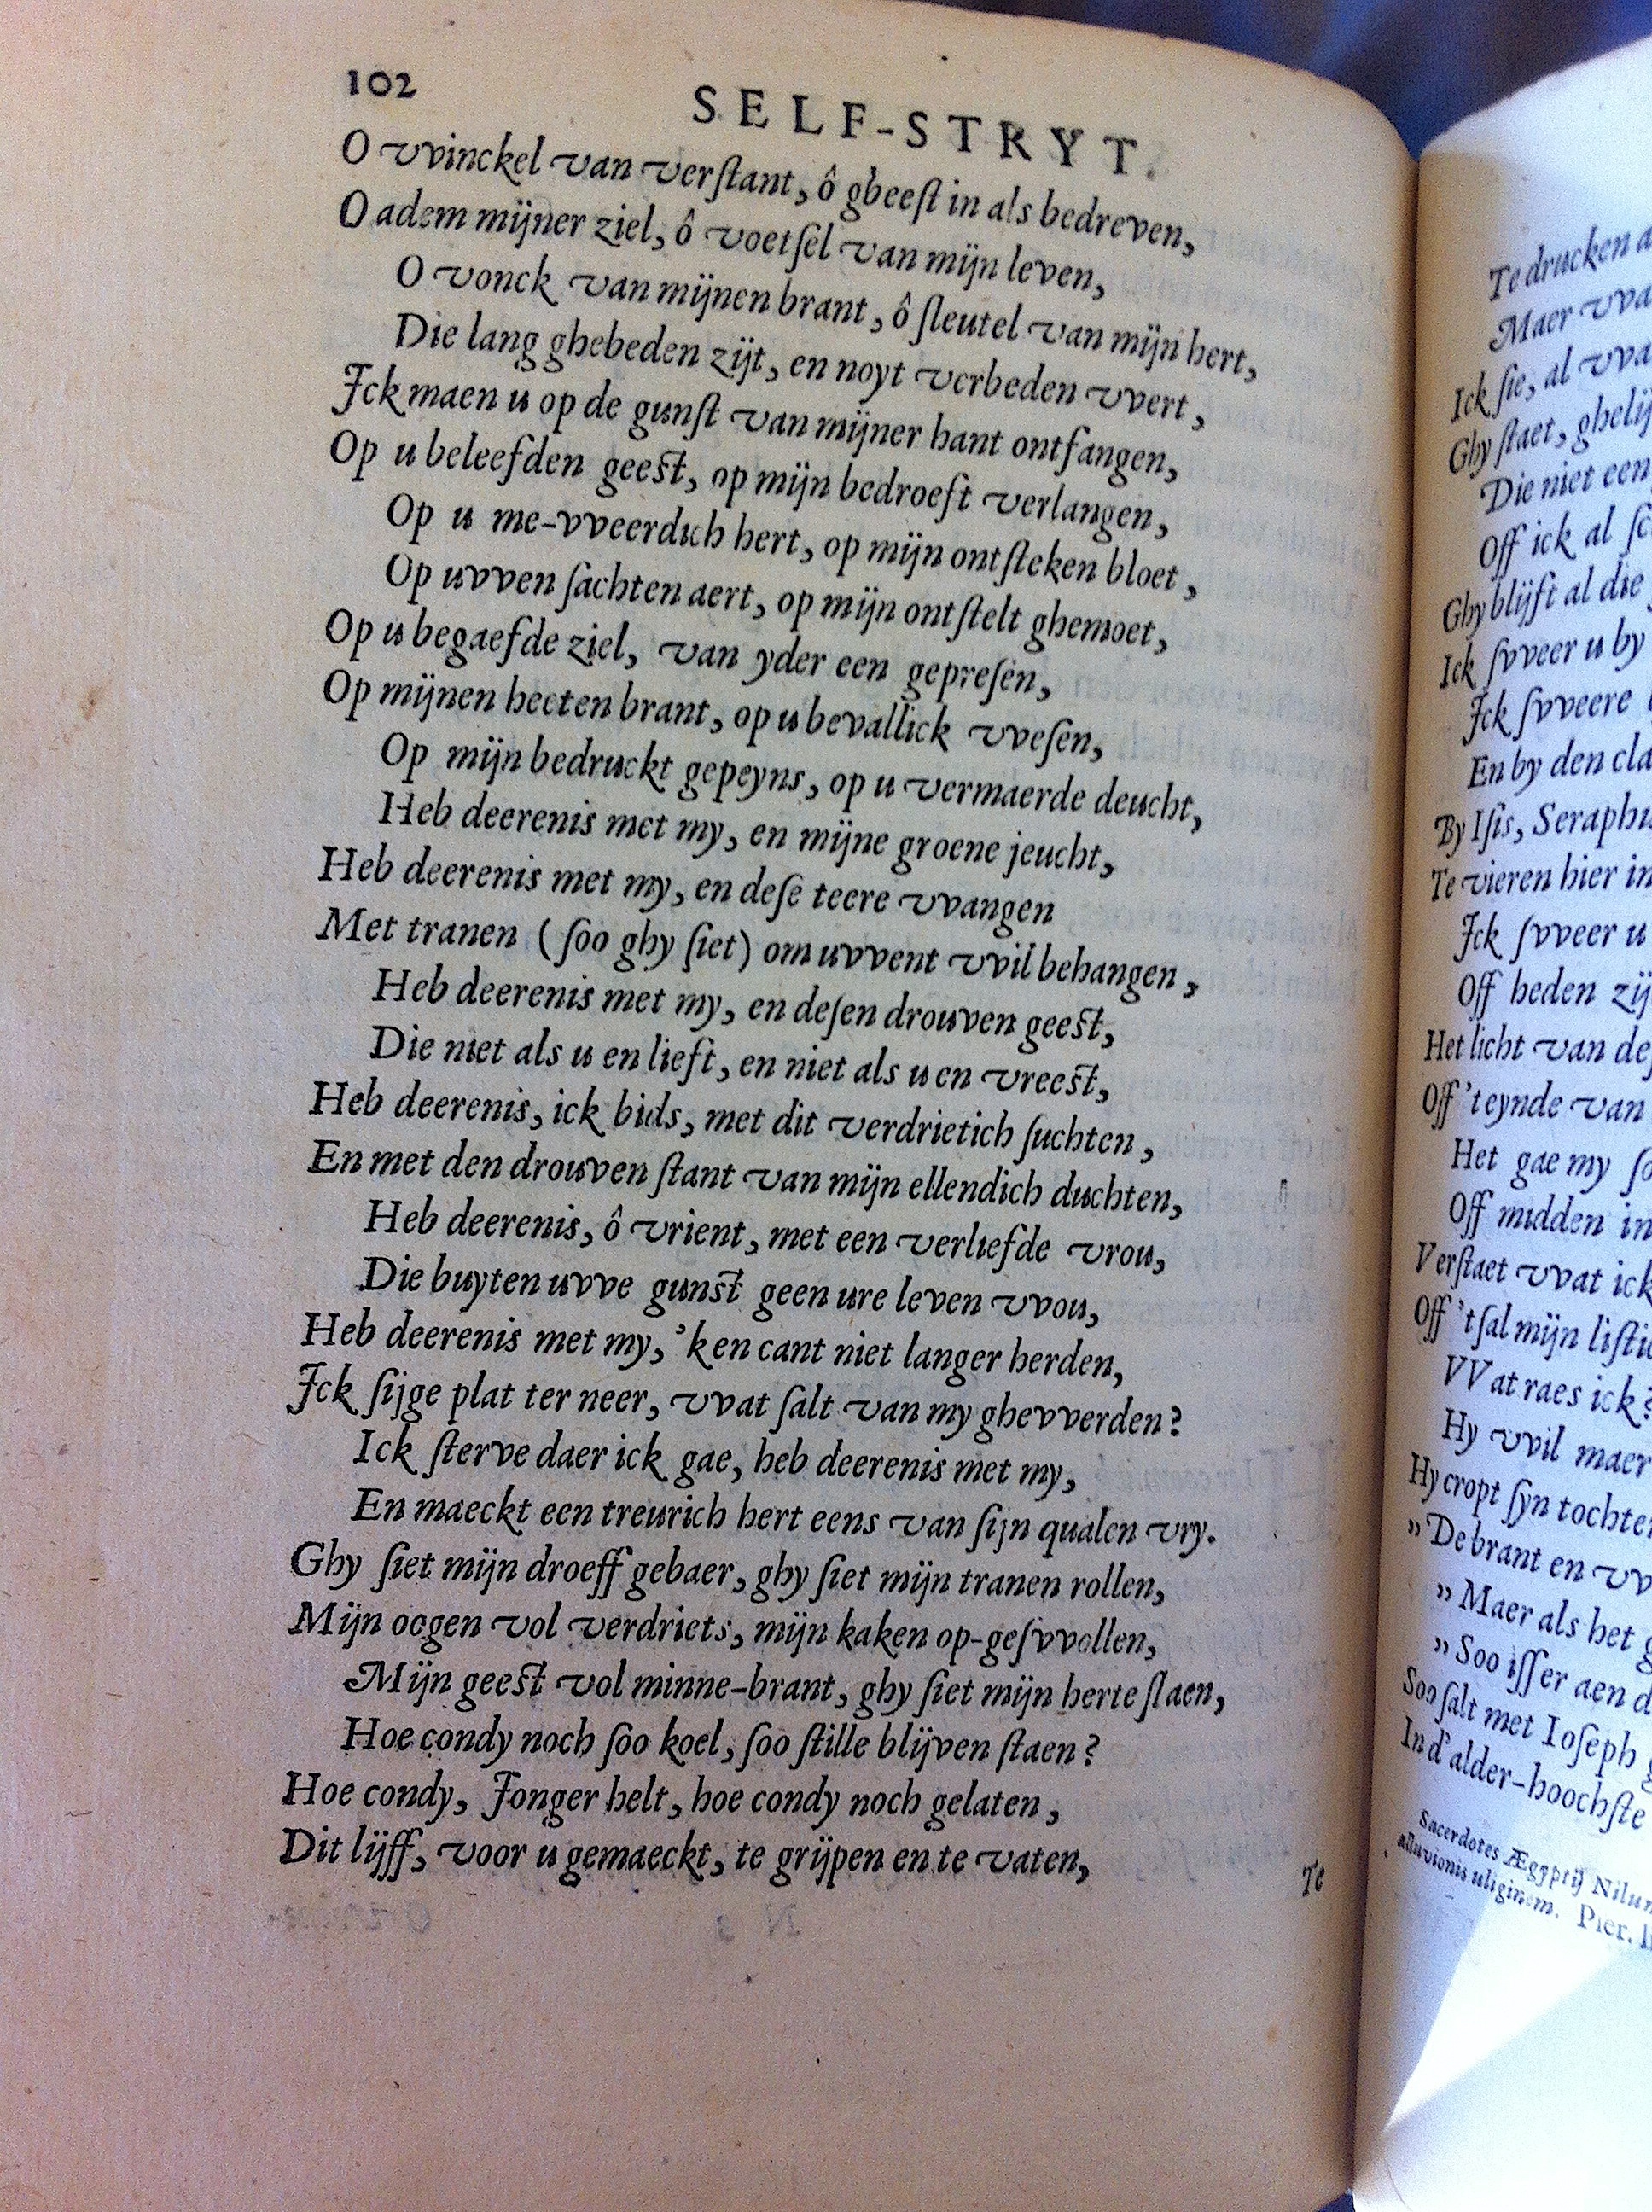 102
SELF-STRYT.
O vvinckel van verſtant, ô gheeſt in als bedreven,
O adem mijner ziel, ô voetſel van mijn leven,
O vonck van mijnen brant, ô ſleutel van mijn hert,
Die lang ghebeden zijt, en noyt verbeden vvert,
Ick maen u op de gunſt van mijner hant ontfangen,
Op u beleefden geeſt, op mijn bedroeft verlangen,
Op u me-vveerdich hert, op mijn ontſteken bloet,
Op uvven ſachten aert, op mijn ontſtelt ghemoet,
Op u begaefde ziel, van yder een gepreſen,
Op mijnen heeten brant, op u bevallick vveſen,
Op mijn bedruckt gepeyns, op u vermaerde deucht,
Heb deerenis met my, en mijne groene jeucht,
Heb deerenis met my, en deſe teere vvangen
Met tranen (ſoo ghy ſiet) om uvvent vvil behangen,
Heb deerenis met my, en deſen drouven geeſt,
Die niet als u en lieft, en niet als u en vreeſt,
Heb deerenis, ick bids, met dit verdrietich ſuchten,
En met den drouven ſtant van mijn ellendich duchten,
Heb deerenis, ô vrient, met een verliefde vrou,
Die buyten uvve gunſt geen ure leven vvou,
Heb deerenis met my, 'k en cant niet langer herden,
Ick ſijge plat ter neer, vvat ſalt van my ghevverden?
Ick ſterve daer ick gae, heb deerenis met my,
En maeckt een treurich hert eens van ſijn qualen vry.
Ghy ſiet mijn droeff gebaer, ghy ſiet mijn tranen rollen,
Mijn oogen vol verdriets, mijn kaken op-geſvvollen,
Mijn geeſt vol minne-brant, ghy ſiet mijn herte ſlaen,
Hoe condy noch ſoo koel, ſoo ſtille blijven ſtaen?
Hoe condy, Jonger helt, hoe condy noch gelaten,
Dit lijff, voor u gemaeckt, te grijpen en te vaten,
Te
Te drucken
Maer
Ick ſie, al
Ghy ſtaet,
Die niet een
Off ick al
Ghy blijft al die
Ick ſvveer u by
Ick ſvveere
En by den
By Iſis,
Te vieren hier
Ick ſvveer u
Off heden
Het licht van
Off 't eynde van
Het gae my
Off midden
Verſtaet vvat ick
Off 't ſal mijn
VVat raes ick?
Hy vvil maer
Hy cropt ſyn
" De brant en
" Maer als het
" Soo iſſer aen
Soo ſalt met Ioſeph
In d'alder-hoochſte
Sacerdotes Ægyptij
alluvionis uliginem. Pier.